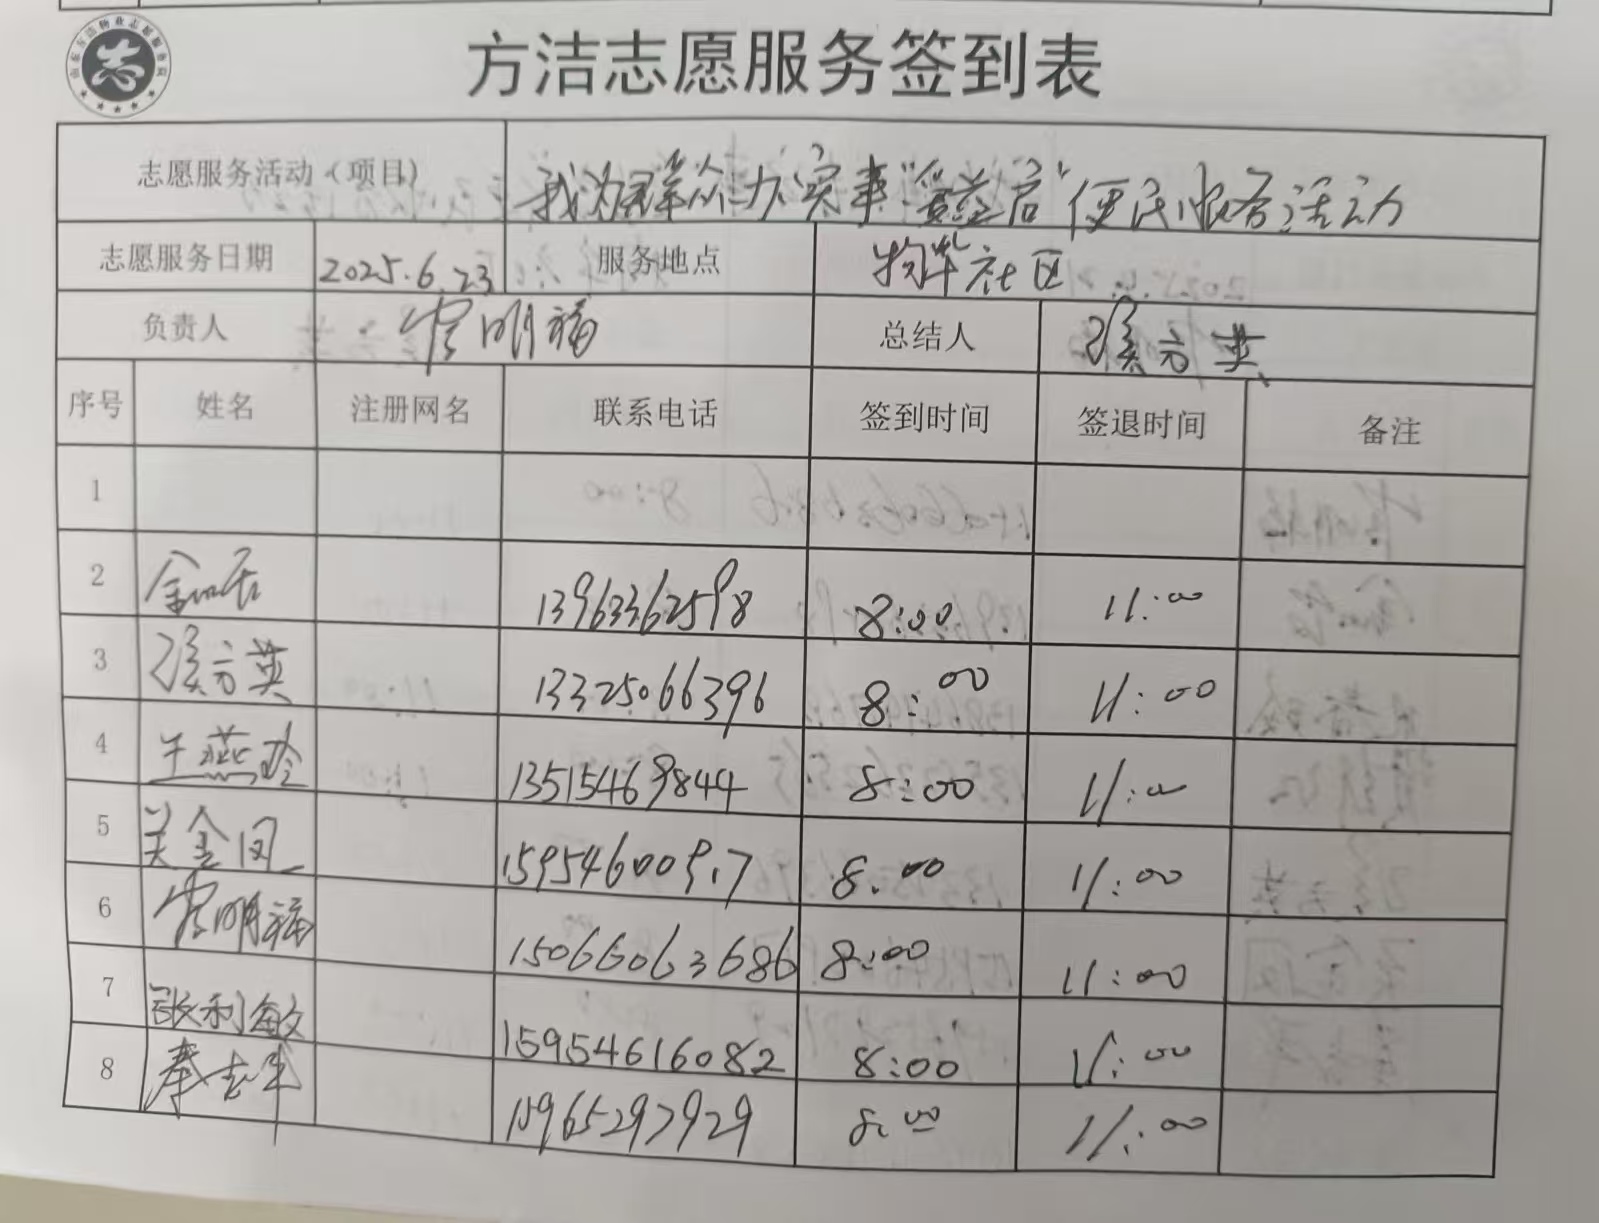 方洁志愿服务签到表
志愿服务活动（项目） 我为群众办实事 便民服务活动
志愿服务日期 2025.6.23 服务地点 物华社区
负责人 明福 总结人 方英
序号 姓名 注册网名 联系电话 签到时间 签退时间 备注
1
2 13963362598 8:00 11:00
3 方英 13325066396 8:00 11:00
4 王燕玲 13515469844 8:00 11:00
5 金凤 8:00 11:00
6 明福 15066063686 8:00 11:00
7 张利敏 15954616082 8:00 11:00
8 秦志军 15965297929 8:00 11:00